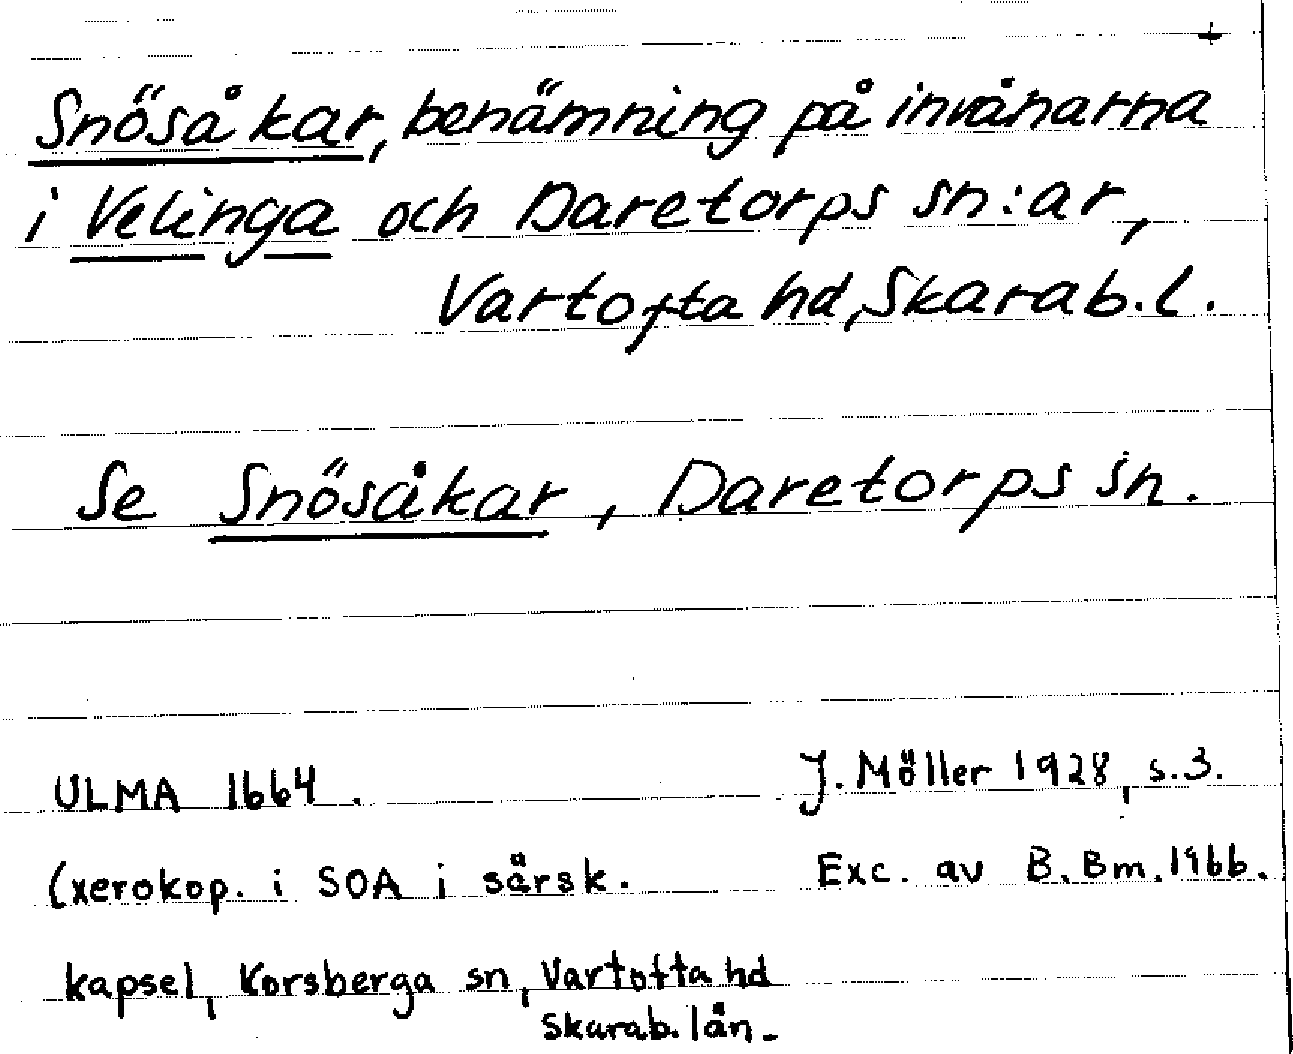 +
Snösåkar, benämning på invånarna
i Velinga och Daretorps sn:ar,
Vartofta hd, Skarab.l.
Se Snösåkar, Daretorps sn.
ULMA 1664.
J. Möller 1928, s.3.
(xerokop. i SOA i särsk.
Exc. av B. Bm. 1966.
kapsel, Korsberga sn, Vartofta hd
Skarab. län.